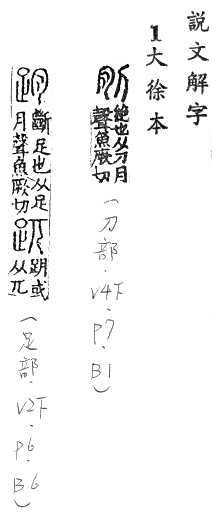 説文解字
1大徐本
刖 絕也从刀月
聲魚厥切
(刀部.V4下.P7.B1)
跀 斷足也从足
月聲魚厥切 𧿁 跀或
从兀
(足部.V2下.P6.B6)